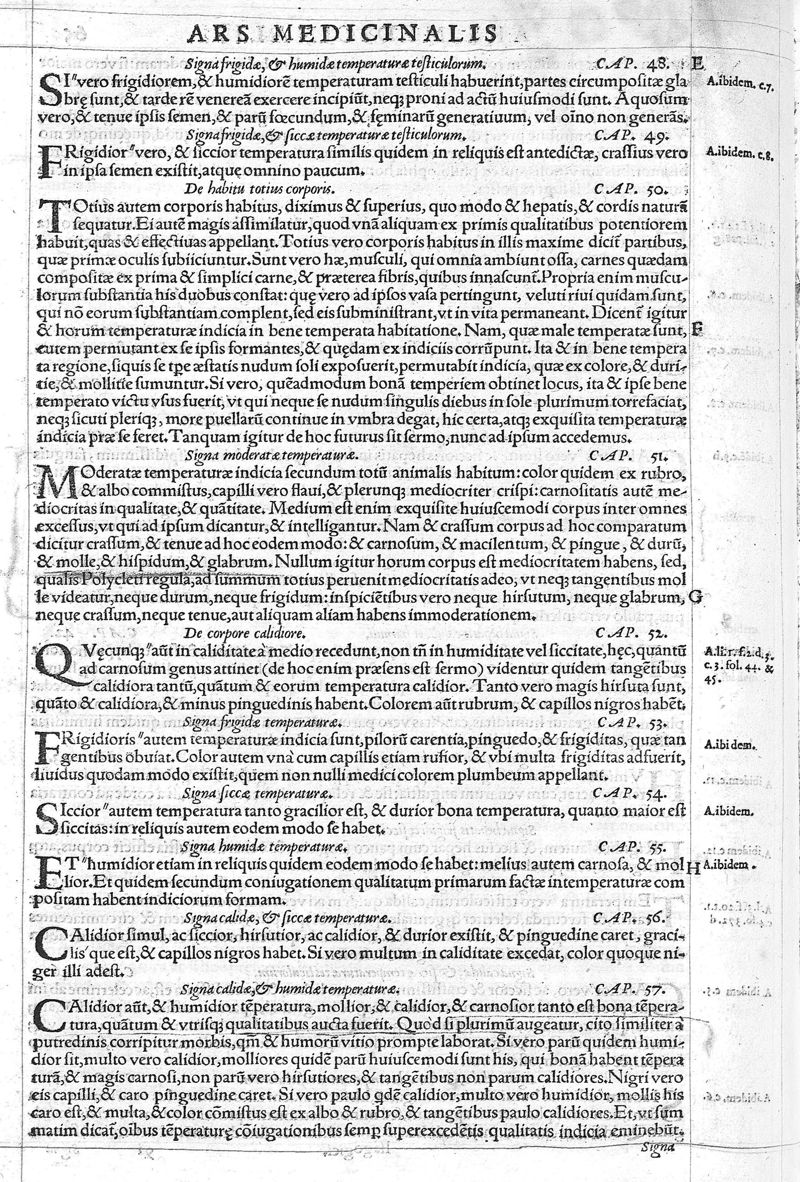 ARS MEDICINALIS
Signa frigidæ, & humidæ temperaturæ testiculorum. CAP. 48. E
SI vero frigidiorem, & humidiorē temperaturam testiculi habuerint, partes circumpositæ gla A. ibidem. c. 7.
bre̜ sunt, & tarde rē venereā exercere incipiūt, neq; proni ad actū huiusmodi sunt. Aquosum
vero, & tenue ipsis semen, & parū fœcundum, & fe̜minarū generatiuum, vel oīno non generās.
Signa frigidæ, & siccæ temperaturæ testiculorum. CAP. 49.
FRigidior " vero, & siccior temperatura similis quidem in reliquis est antedictæ, crassius vero A. ibidem. c. 8.
in ipsa semen existit, atque omnino paucum.
De habitu totius corporis. CAP. 50.
TOtius autem corporis habitus, diximus & superius, quo modo & hepatis, & cordis naturā
sequatur. Ei autē magis assimilatur, quod vnā aliquam ex primis qualitatibus potentiorem
habuit, quas & effectiuas appellant. Totius vero corporis habitus in illis maxime dicit̄ partibus,
quæ primæ oculis subiiciuntur. Sunt vero hæ, musculi, qui omnia ambiunt ossa, carnes quædam
compositæ ex prima & simplici carne, & præterea fibris, quibus innascunt̄. Propria enim muscu-
lorum substantia his duobus constat: que̜ vero ad ipsos vasa pertingunt, veluti riui quidam sunt,
qui nō eorum substantiam complent, sed eis subministrant, vt in vita permaneant. Dicent̄ igitur
& horum temperaturæ indicia in bene temperata habitatione. Nam, quæ male temperatæ sunt, F
cutem permutant ex se ipsis formantes, & que̜dam ex indiciis corrūpunt. Ita & in bene tempera
ta regione, siquis se tp̄e æstatis nudum soli exposuerit, permutabit indicia, quæ ex colore, & duri-
tie, & mollitie sumuntur. Si vero, quēadmodum bonā temperiem obtinet locus, ita & ipse bene
temperato victu vsus fuerit, vt qui neque se nudum singulis diebus in sole plurimum torrefaciat,
neq; sicuti pleriq;, more puellarū continue in vmbra degat, hic certa, atq; exquisita temperaturæ
indicia præ se feret. Tanquam igitur de hoc futurus sit sermo, nunc ad ipsum accedemus.
Signa moderatæ temperaturæ. CAP. 51.
MOderatæ temperaturæ indicia secundum totiū animalis habitum: color quidem ex rubro,
& albo commistus, capilli vero flaui, & plerunq; mediocriter crispi: carnositatis autē me-
diocritas in qualitate, & quātitate. Medium est enim exquisite huiuscemodi corpus inter omnes
excessus, vt qui ad ipsum dicantur, & intelligantur. Nam & crassum corpus ad hoc comparatum
dicitur crassum, & tenue ad hoc eodem modo: & carnosum, & macilentum, & pingue, & durū,
& molle, & hispidum, & glabrum. Nullum igitur horum corpus est mediocritatem habens, sed,
qualis Polycleti regula, ad summum totius peruenit mediocritatis adeo, vt neq; tangentibus mol
le videatur, neque durum, neque frigidum: inspiciētibus vero neque hirsutum, neque glabrum, G
neque crassum, neque tenue, aut aliquam aliam habens immoderationem.
De corpore calidiore. CAP. 52.
QVe̜cunq; " aūt in caliditate a medio recedunt, non tn̄ in humiditate vel siccitate, he̜c, quantū A. li. 1. f. 2. d. 3.
ad carnosum genus attinet (de hoc enim præsens est sermo) videntur quidem tangētibus c. 3. fol. 44. &
calidiora tantū, quātum & eorum temperatura calidior. Tanto vero magis hirsuta sunt, 45.
quāto & calidiora, & minus pinguedinis habent. Colorem aūt rubrum, & capillos nigros habēt.
Signa frigidæ temperaturæ. CAP. 53.
FRigidioris " autem temperaturæ indicia sunt, pilorū carentia, pinguedo, & frigiditas, quæ tan A. ibidem.
gentibus obuiat. Color autem vna cum capillis etiam rufior, & vbi multa frigiditas adfuerit,
liuidus quodam modo existit, quem non nulli medici colorem plumbeum appellant.
Signa siccæ temperaturæ. CAP. 54.
SIccior " autem temperatura tanto gracilior est, & durior bona temperatura, quanto maior est A. ibidem.
siccitas: in reliquis autem eodem modo se habet.
Signa humidæ temperaturæ. CAP. 55.
ET " humidior etiam in reliquis quidem eodem modo se habet: melius autem carnosa, & mol H A. ibidem.
lior. Et quidem secundum coniugationem qualitatum primarum factæ intemperaturæ com
positam habent indiciorum formam.
Signa calidæ, & siccæ temperaturæ. CAP. 56.
CAlidior simul, ac siccior, hirsutior, ac calidior, & durior existit, & pinguedine caret, graci-
lis que est, & capillos nigros habet. Si vero multum in caliditate excedat, color quoque ni-
ger illi adest.
Signa calidæ, & humidæ temperaturæ. CAP. 57.
CAlidior aūt, & humidior tēperatura, mollior, & calidior, & carnosior tanto est bona tēpera-
tura, quātum & vtrisq; qualitatibus aucta fuerit. Quod si plurimū augeatur, cito similiter a
putredinis corripitur morbis, qm̄ & humorū vitio prompte laborat. Si vero parū quidem humi-
dior sit, multo vero calidior, molliores quidē parū huiuscemodi sunt his, qui bonā habent tēpera
turā, & magis carnosi, non parū vero hirsutiores, & tangētibus non parum calidiores. Nigri vero
eis capilli, & caro pinguedine caret. Si vero paulo qdē calidior, multo vero humidior, mollis his
caro est, & multa, & color cōmistus est ex albo & rubro, & tangētibus paulo calidiores. Et, vt sum
matim dicat̄, oībus tēperature̜ cōiugationibus semp̱ superexcedētis qualitatis indicia eminebūt.
Signa